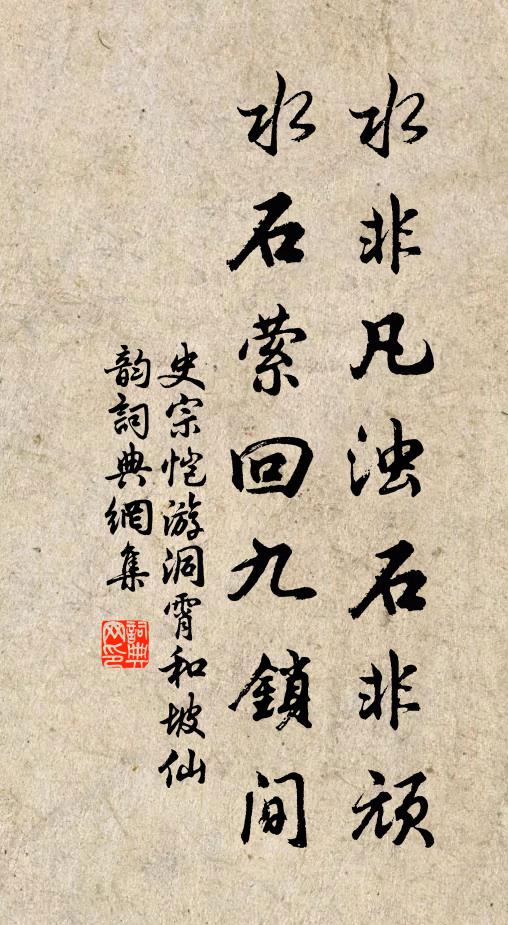 水非凡浊石非顽
水石萦回九鎖间
史宗恺游洞霄和坡仙
韵詞典網集
詞典网印